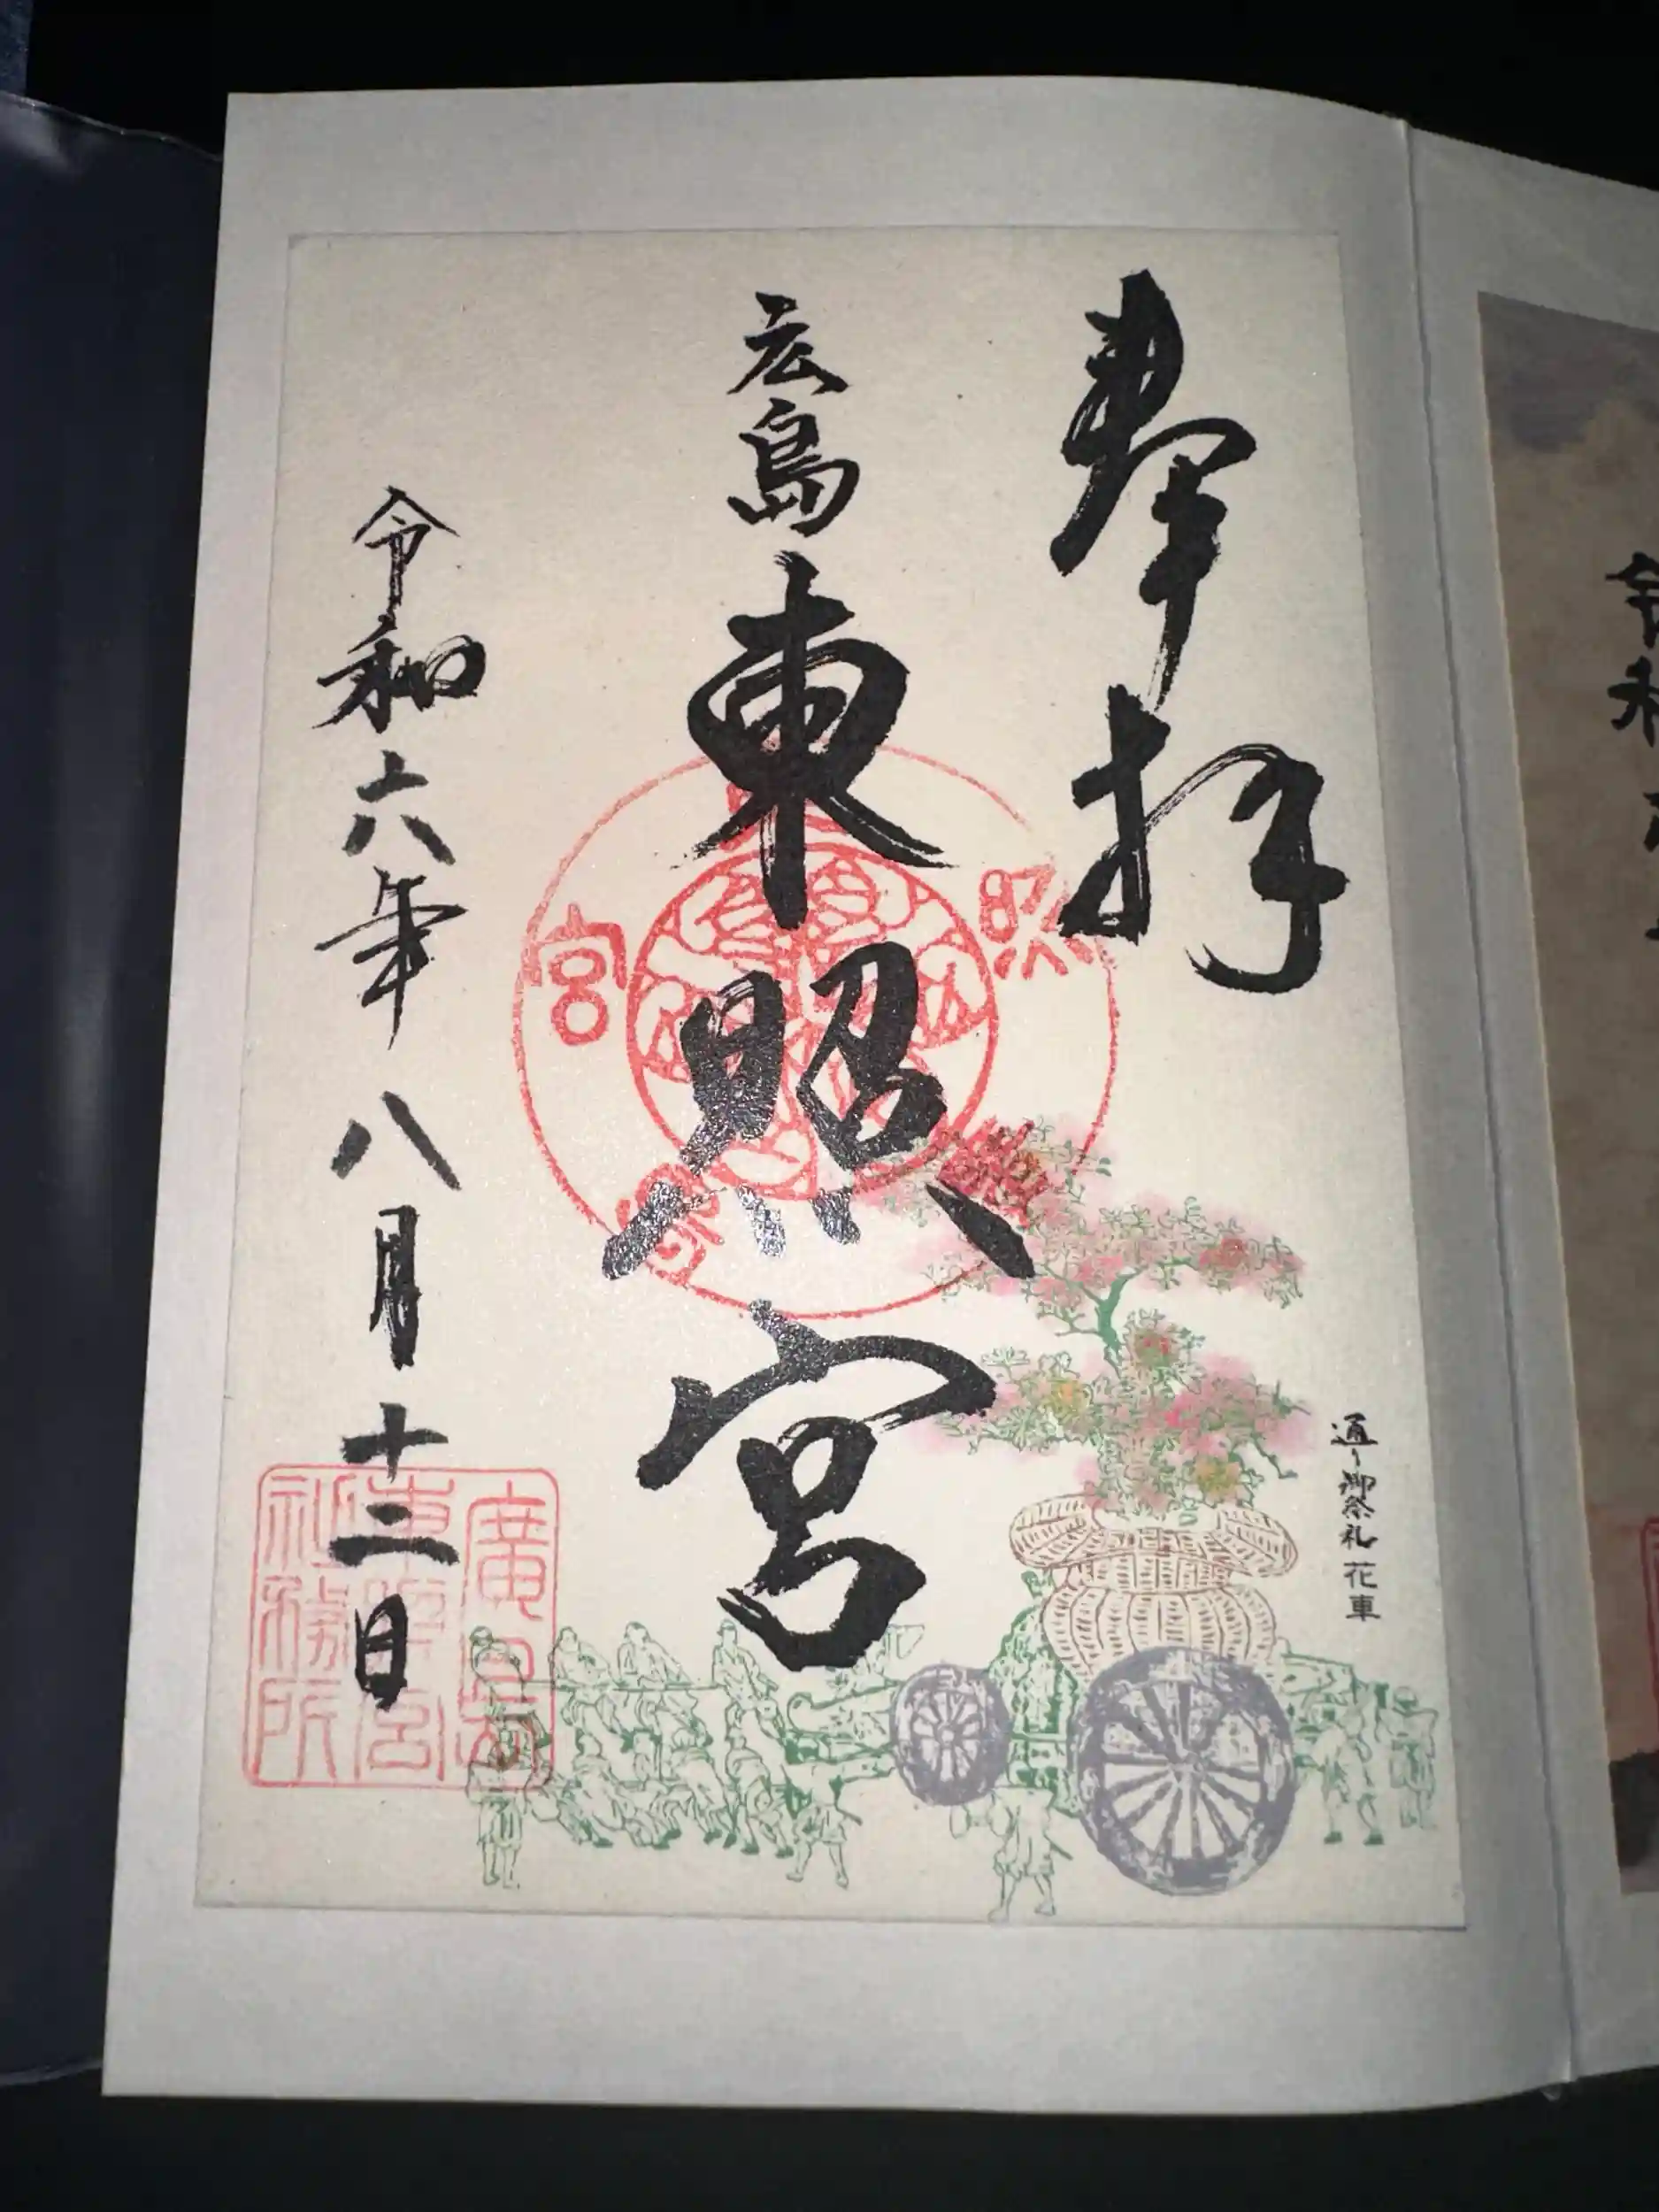 奉拝
通り御祭礼 花車
広島 東照宮
令和六年 八月十二日
廣島
東照宮
社務所
令和